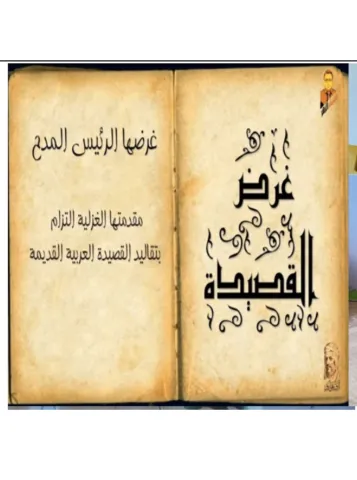 غرض
القصيدة
غرضها الرئيس المدح
مقدمتها الغزلية التزام
بتقاليد القصيدة العربية القديمة